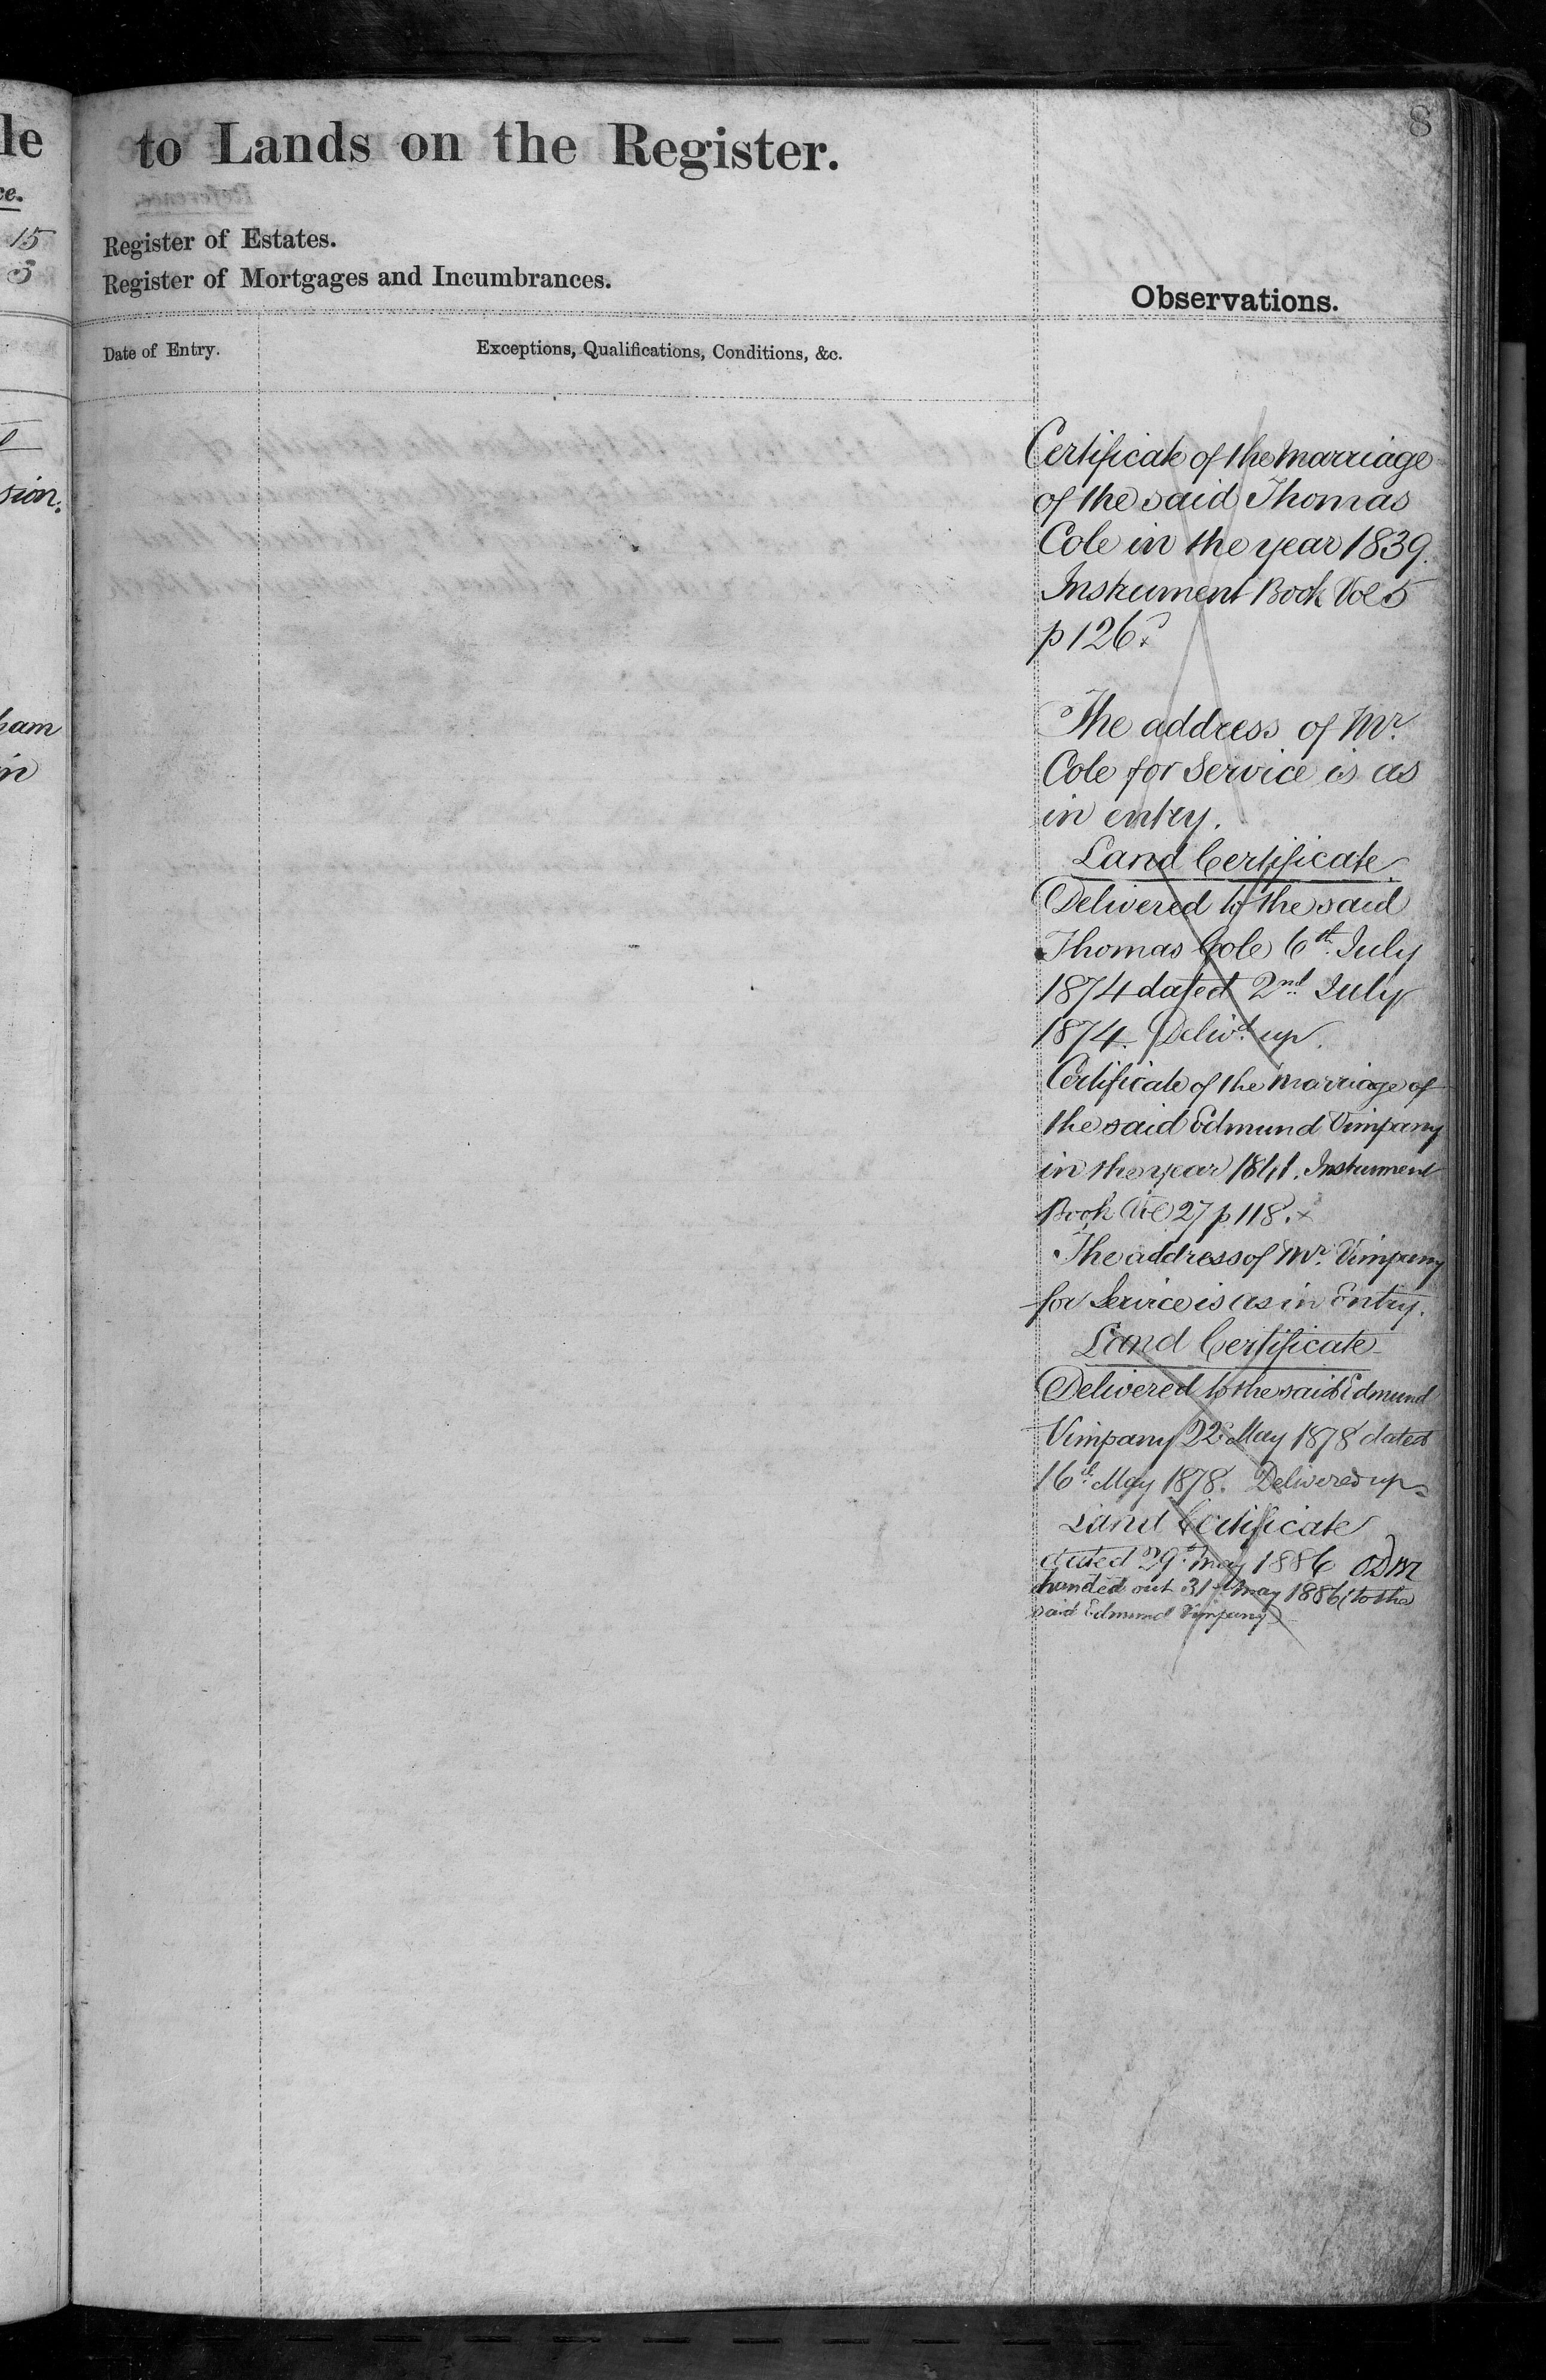 8
le
to Lands on the Register.
ce.
15
Register of Estates.
3
Register of Mortgages and Incumbrances.
Observations.
Date of Entry.
Exceptions, Qualifications, Conditions, &c.
sion.
ham
in
Certificate of the Marriage
of the said Thomas
Cole in the year 1839.
Instrument Book Vol 5
p 126.
The address of Mr.
Cole for Service is as
in entry.
Land Certificate.
Delivered to the said
Thomas Cole 6th. July
1874 dated 2nd. July
1874. Delivd. up.
Certificate of the Marriage of
the said Edmund Vimpany
in the year 1841. Instrument
Book Vol 27 p 118.
The address of Mr. Vimpany
for Service is as in Entry.
Land Certificate
Delivered to the said Edmund
Vimpany 22d May 1878 dated
16th. May 1878. Delivered up
Land Certificate
dated 29th May 1886
handed out 31st May 1886 (to the
said Edmund Vimpany)